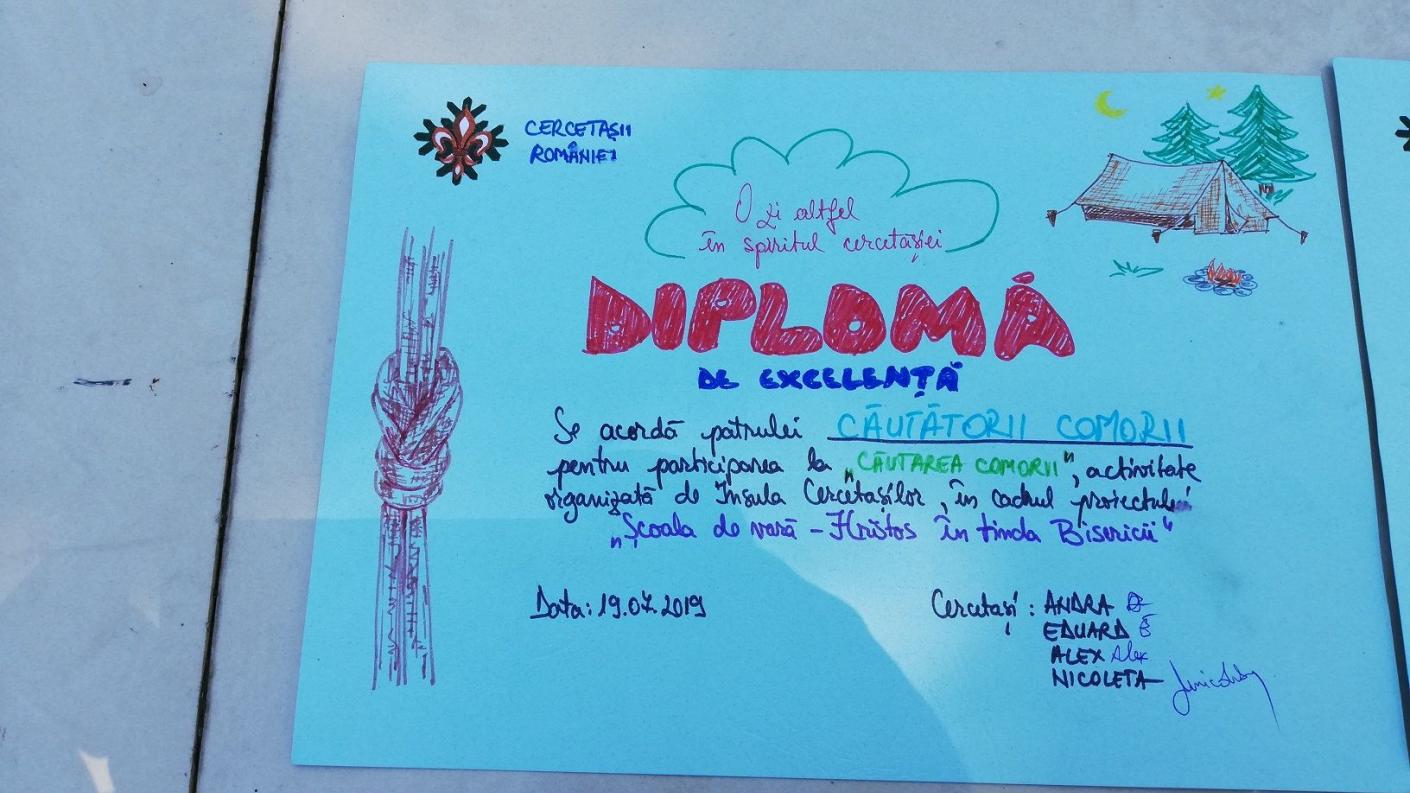 CERCETAȘII
ROMÂNIEI
O zi altfel
în spiritul cercetășiei
DIPLOMĂ
DE EXCELENȚĂ
Se acordă patrulei CĂUTĂTORII COMORII
pentru participarea la „CĂUTAREA COMORII", activitate
organizată de Insula Cercetașilor, în cadrul proiectului
„Școala de vară - Hristos în tinda Bisericii"
Data: 19.07.2019
Cercetași: ANDRA
EDUARD E
ALEX Alex
NICOLETA